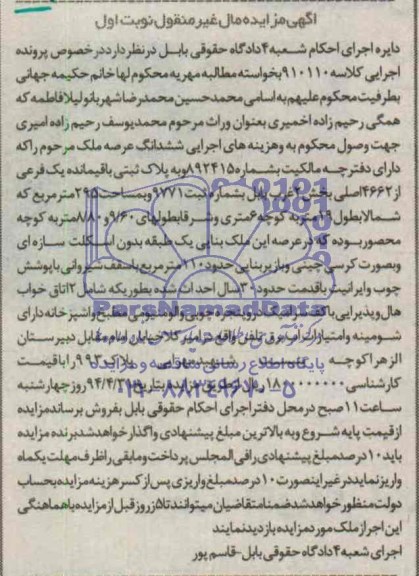 آگهی مزایده مال غیر منقول نوبت اول
دایره اجرای احکام شعبه ۴ دادگاه حقوقی بابل در نظر دارد در خصوص پرونده
اجرایی کلاسه ۹۱۰۱۱۰ بخواسته مطالبه مهریه محکوم لها خانم حکیمه جهانی
بطرفیت محکوم علیهم به اسامی محمدحسین محمدرضا شهربانو لیلا فاطمه که
همگی رحیم زاده اخمیری بعنوان وراث مرحوم محمدیوسف رحیم زاده امیری
جهت وصول محکوم به وهزینه های اجرایی ششدانگ عرصه ملک مرحوم راکه
دارای دفترچه مالکیت بشماره ۸۹۲۴۱۵ وبه پلاک ثبتی باقیمانده یک فرعی
از ۴۶۶۲ اصلی بخش غرب بابل بشماره ثبت ۹۷۷۱ وبمساحت ۲۹۵ متر مربع که
شمالا بطول ۲۹ متر به کوچه ۶ متری و شرقا بطولهای ۹/۶۰ و ۸/۸۰ متر به کوچه
محصور بوده که در عرصه این ملک بنایی یک طبقه بدون اسکلت سازه ای
وبصورت کرسی چینی و باز بربنایی حدود ۱۱۰ متر مربع با سقف شیروانی با پوشش
چوب و ایرانیت با قدمت حدود ۳۰ سال احداث شده بطوریکه شامل ۲ اتاق خواب
هال وپذیرایی با کف سرامیک در و پنجره چوبی والومینیومی مطبخ و آشپزخانه دارای
شومینه وامتیازات آب برق تلفن واقع در امیر کلا خیابان امام مقابل دبیرستان
الزهرا کوچه شهید بهرامی پلاک ۹۹۳ را با قیمت
کارشناسی ۱۸۰۰۰۰۰۰۰۰ ریال از طریق مزایده بتاریخ ۹۴/۴/۳۱ روز چهارشنبه
ساعت ۱۱ صبح در محل دفتر اجرای احکام حقوقی بابل بفروش برساند مزایده
از قیمت پایه شروع و به بالاترین مبلغ پیشنهادی واگذار خواهد شد برنده مزایده
باید ۱۰ درصد مبلغ پیشنهادی را فی المجلس پرداخت و مابقی را ظرف مهلت یکماه
واریز نماید در غیر اینصورت ۱۰ درصد مبلغ واریزی پس از کسر هزینه مزایده بحساب
دولت منظور خواهد شد ضمنا متقاضیان میتوانند تا ۵ روز قبل از مزایده با هماهنگی
این اجرا از ملک مورد مزایده بازدید نمایند
اجرای شعبه ۴ دادگاه حقوقی بابل - قاسم پور
ParsNamadData
پایگاه اطلاع رسانی مناقصه و مزایده
۰۲۱-۸۸۳۴۹۶۷۰-۵